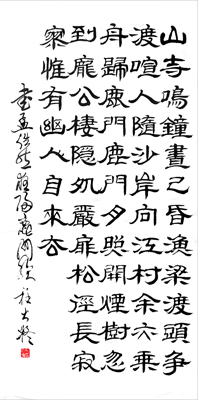 山寺鳴鐘晝已昏漁梁渡頭爭
渡喧人隨沙岸向江村余亦乘
舟歸鹿門鹿門月照開煙樹忽
到龐公棲隱処巖扉松徑長寂
寥惟有幽人自來去
書孟浩然夜歸鹿門歌